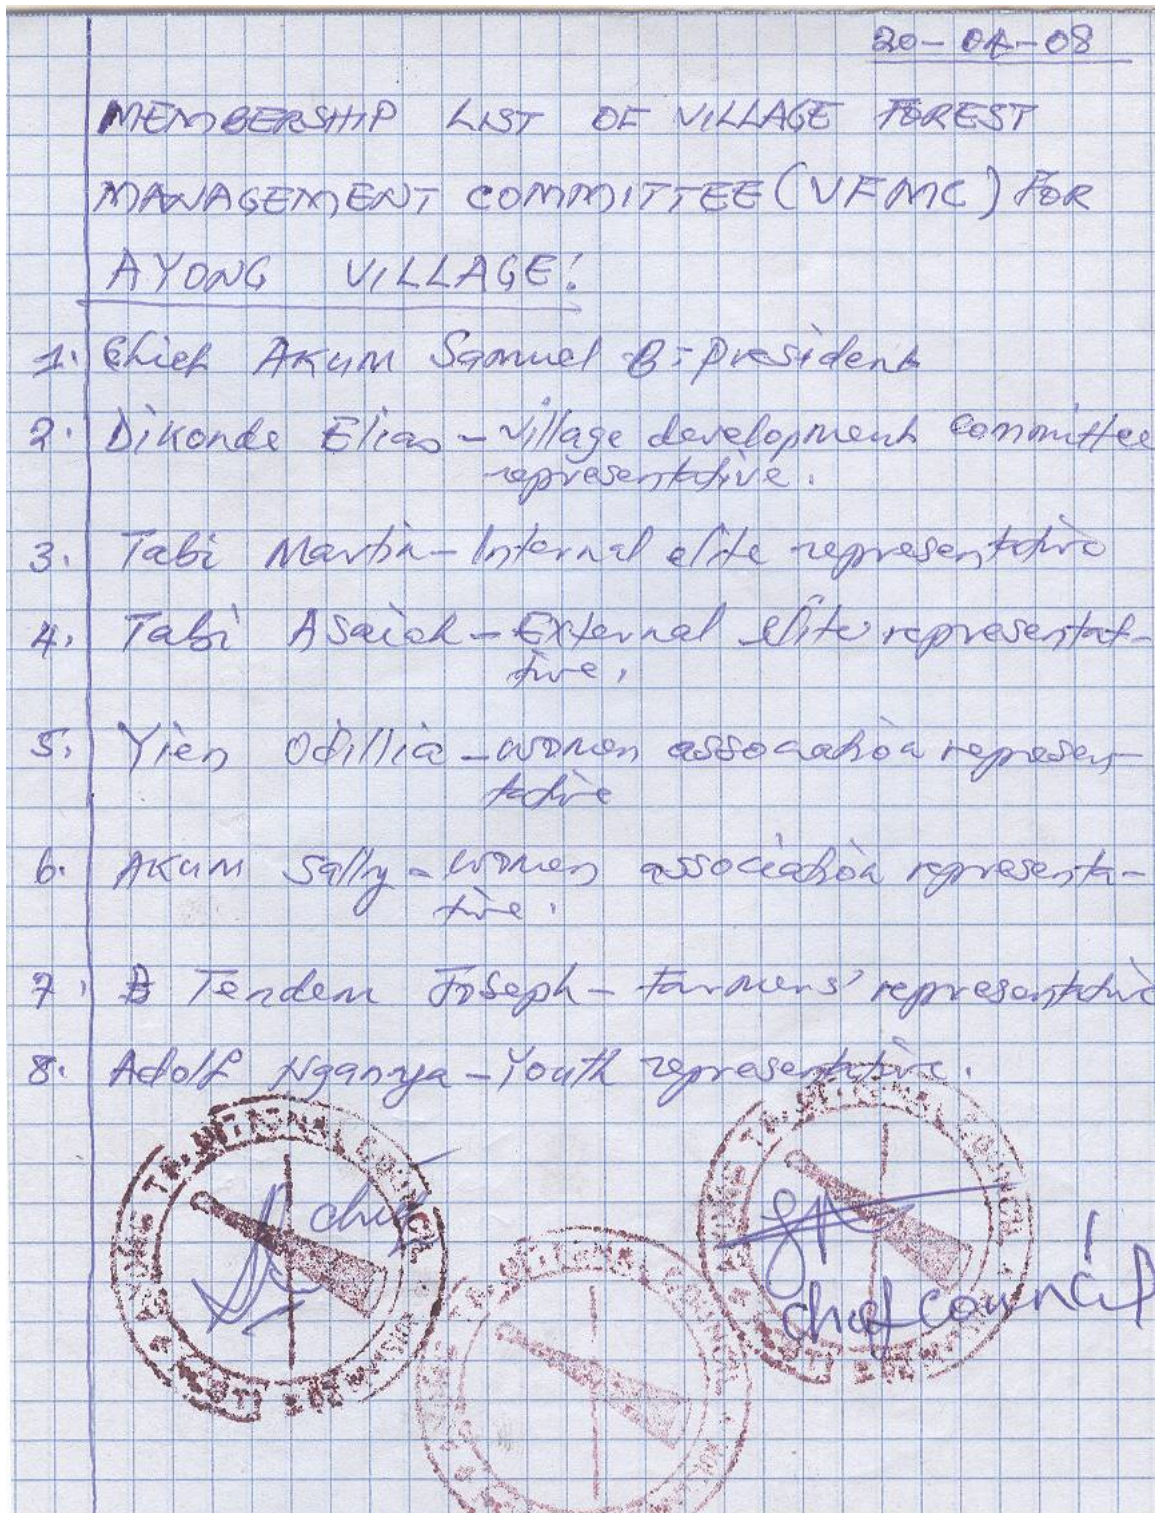 20-04-08
MEMBERSHIP LIST OF VILLAGE FOREST
MANAGEMENT COMMITTEE (VFMC) FOR
AYONG VILLAGE:
1. Chief Akum Samuel B - president
2. Dikonde Elias - village development committee
representative.
3. Tabi Martin - Internal elite representative
4. Tabi Asaiah - External elite representat-
tive.
5. Yien Odillia - women association represen-
tative
6. Akum Sally - women association representa-
tive.
7. Tendem Joseph - farmers' representative
8. Adolf Nganya - Youth representative.
chief
chief council